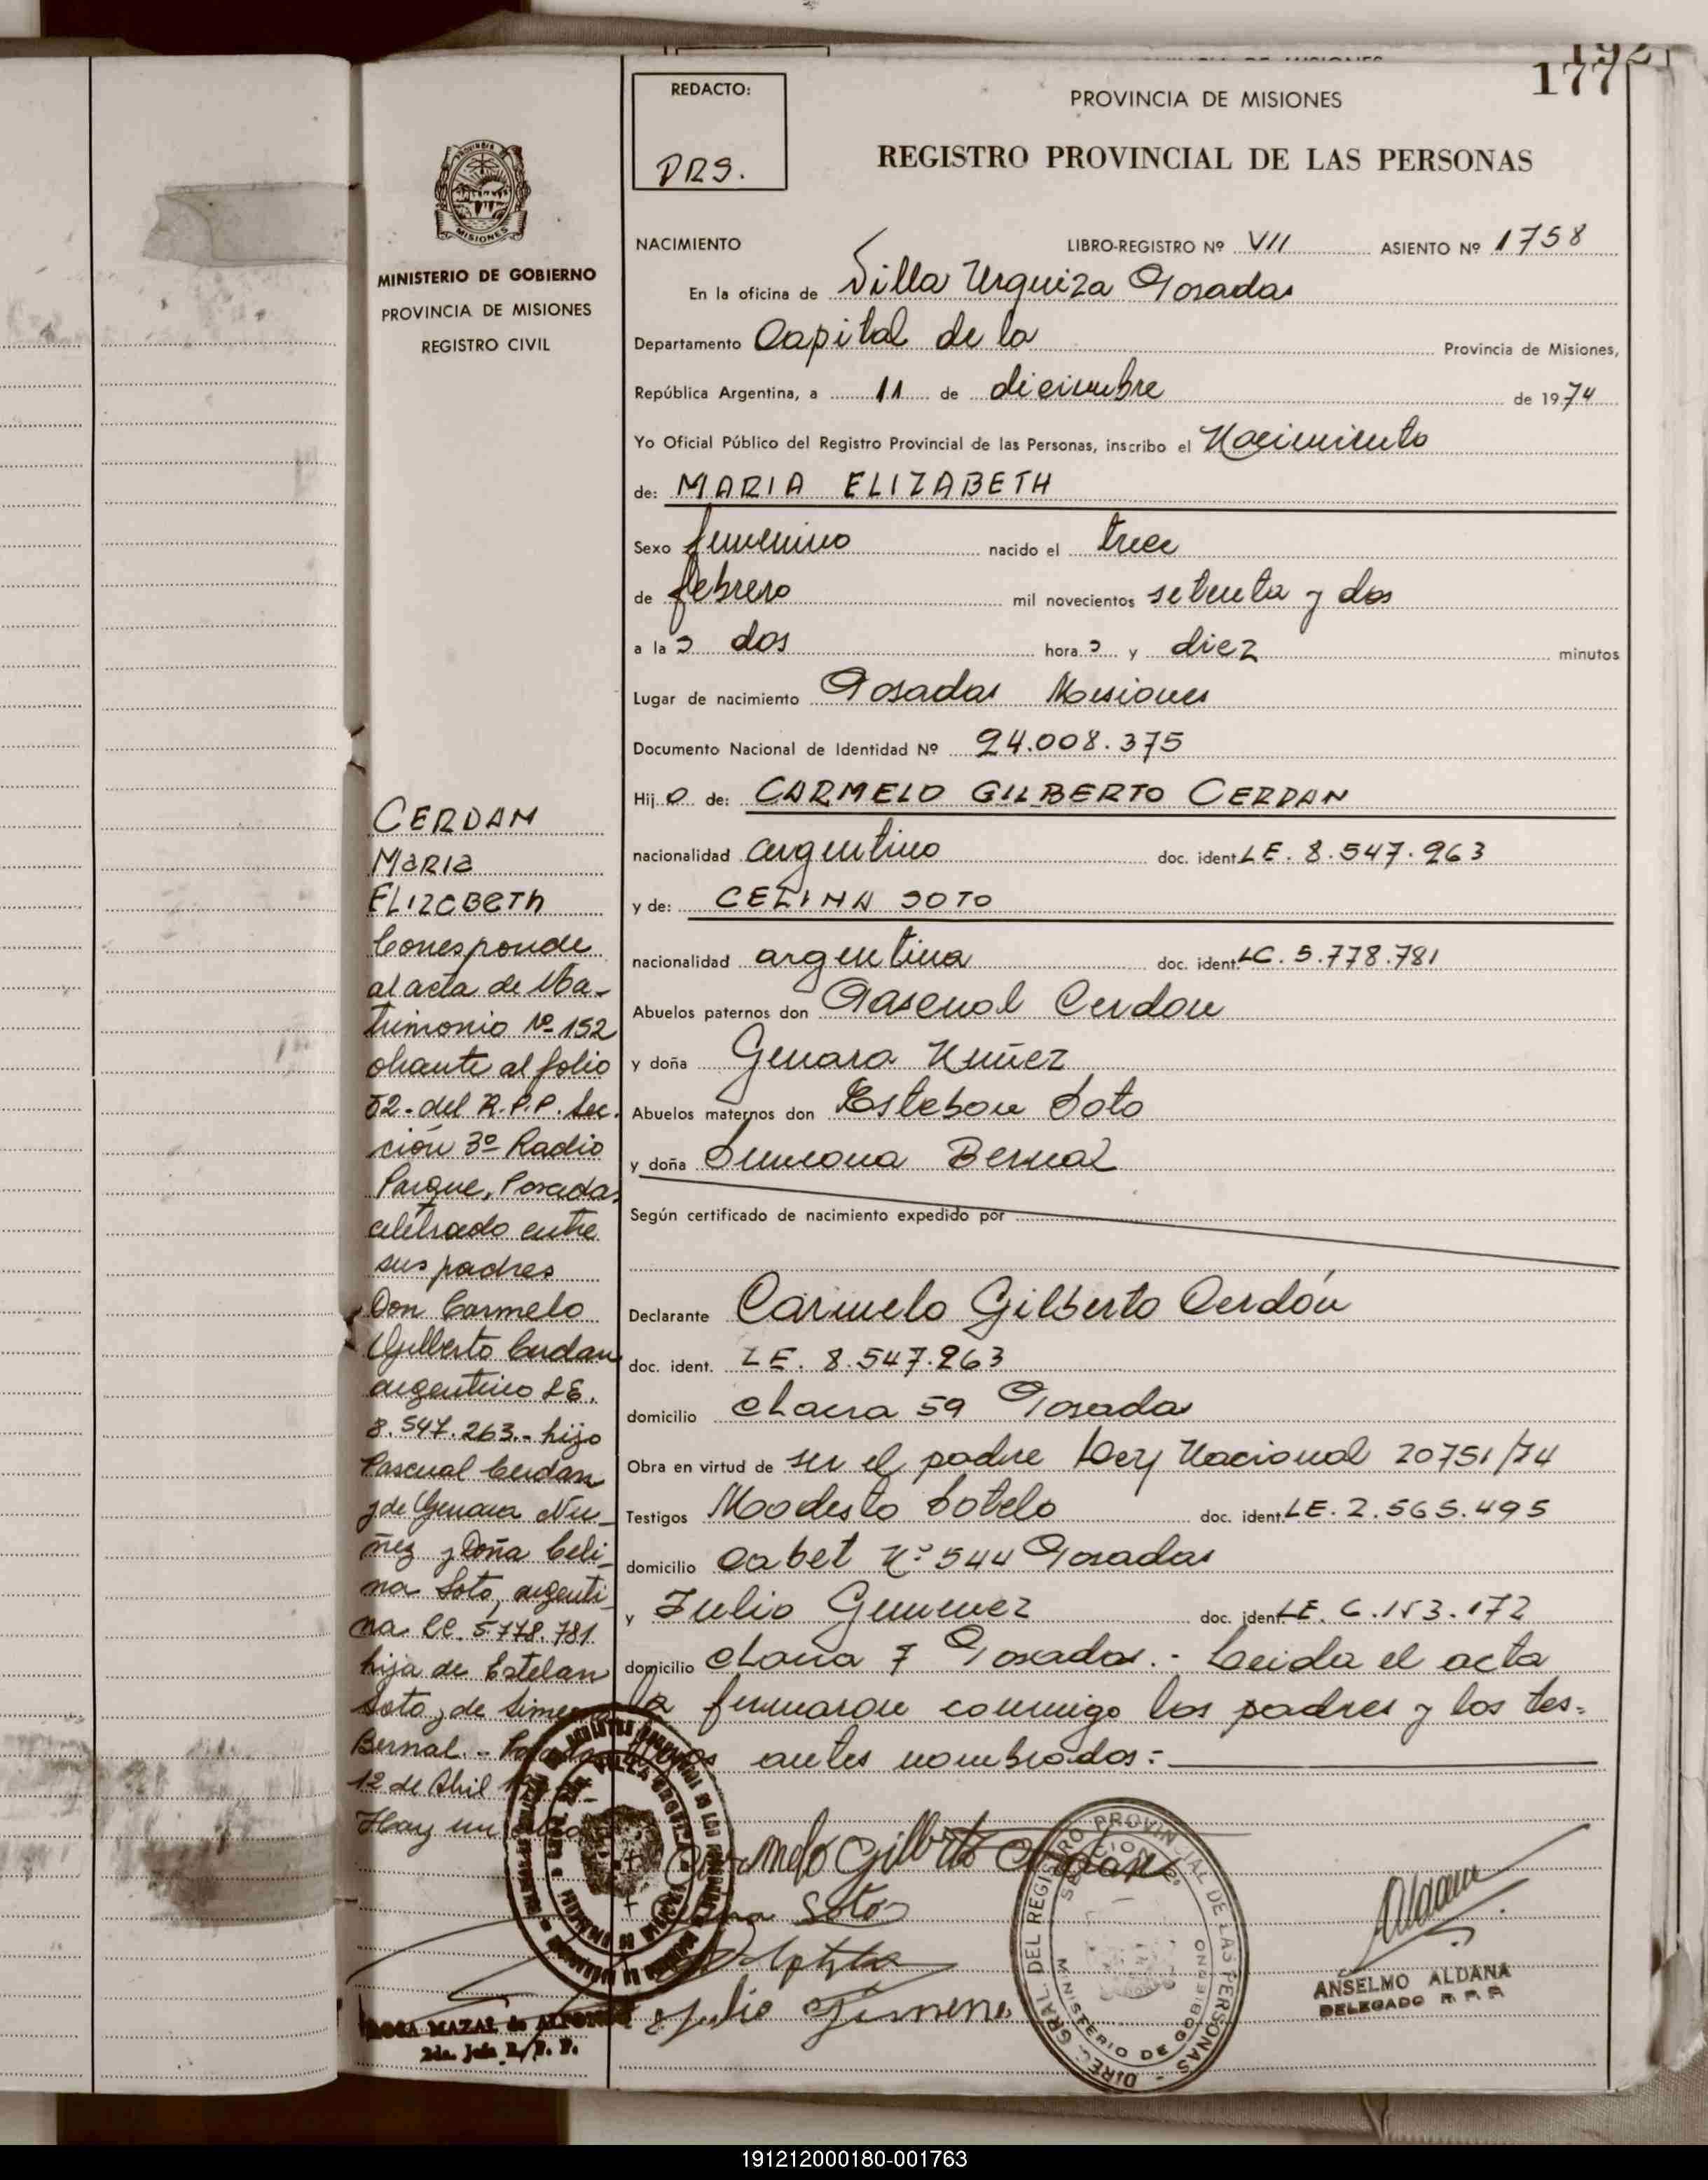 192
177
REDACTO:
DRS.
PROVINCIA DE MISIONES
REGISTRO PROVINCIAL DE LAS PERSONAS
MINISTERIO DE GOBIERNO
PROVINCIA DE MISIONES
REGISTRO CIVIL
NACIMIENTO LIBRO-REGISTRO Nº VII ASIENTO Nº 1758
En la oficina de Villa Urquiza Posadas
Departamento Capital de la Provincia de Misiones,
República Argentina, a 11 de diciembre de 1974
Yo Oficial Público del Registro Provincial de las Personas, inscribo el Nacimiento
de: MARIA ELIZABETH
Sexo femenino nacido el trece
de febrero mil novecientos setenta y dos
a las dos horas y diez minutos
Lugar de nacimiento Posadas Misiones
Documento Nacional de Identidad Nº 24.008.375
Hijo de: CARMELO GILBERTO CERDAN
nacionalidad argentino doc. ident. LE. 8.547.263
y de: CELINA SOTO
nacionalidad argentina doc. ident. LC. 5.778.781
Abuelos paternos don Pascual Cerdan
y doña Genara Nuñez
Abuelos maternos don Esteban Soto
y doña Simeona Bernal
Según certificado de nacimiento expedido por
Declarante Carmelo Gilberto Cerdán
doc. ident. LE. 8.547.263
domicilio chacra 59 Posadas
Obra en virtud de ser el padre Ley Nacional 20751/74
Testigos Modesto Sotelo doc. ident. LE. 2.565.495
domicilio Cabet Nº 544 Posadas
y Julio Gimenez doc. ident. LE. 6.153.172
domicilio chacra 7 Posadas.- Leida el acta
la firmaron conmigo los padres y los tes-
tigos antes nombrados:-
CERDAN
MARIA
ELIZABETH
Corresponde
al acta de Ma-
trimonio Nº 152
obrante al folio
52.- del R.P.P. Sec.
ción 3º Radio
Parque, Posadas
celebrado entre
sus padres
Don Carmelo
Gilberto Cerdan
argentino LE.
8.547.263.- hijo
Pascual Cerdan
y de Genara Nu-
ñez y Doña Celi-
na Soto, argenti-
na LC. 5.778.781
hija de Esteban
Soto y de Simeona
Bernal.- Posadas
12 de Abril
Hay un sello
Carmelo Gilberto Cerdan
Celina Soto
Julio Gimene
DIREC. GRAL. DEL REGISTRO PROVINCIAL DE LAS PERSONAS
MINISTERIO DE GOBIERNO
Aldana
ANSELMO ALDANA
DELEGADO R. P. P.
ROSA MAZAL de ALFONSO
2da. Jefa R. P. P.
191212000180-001763